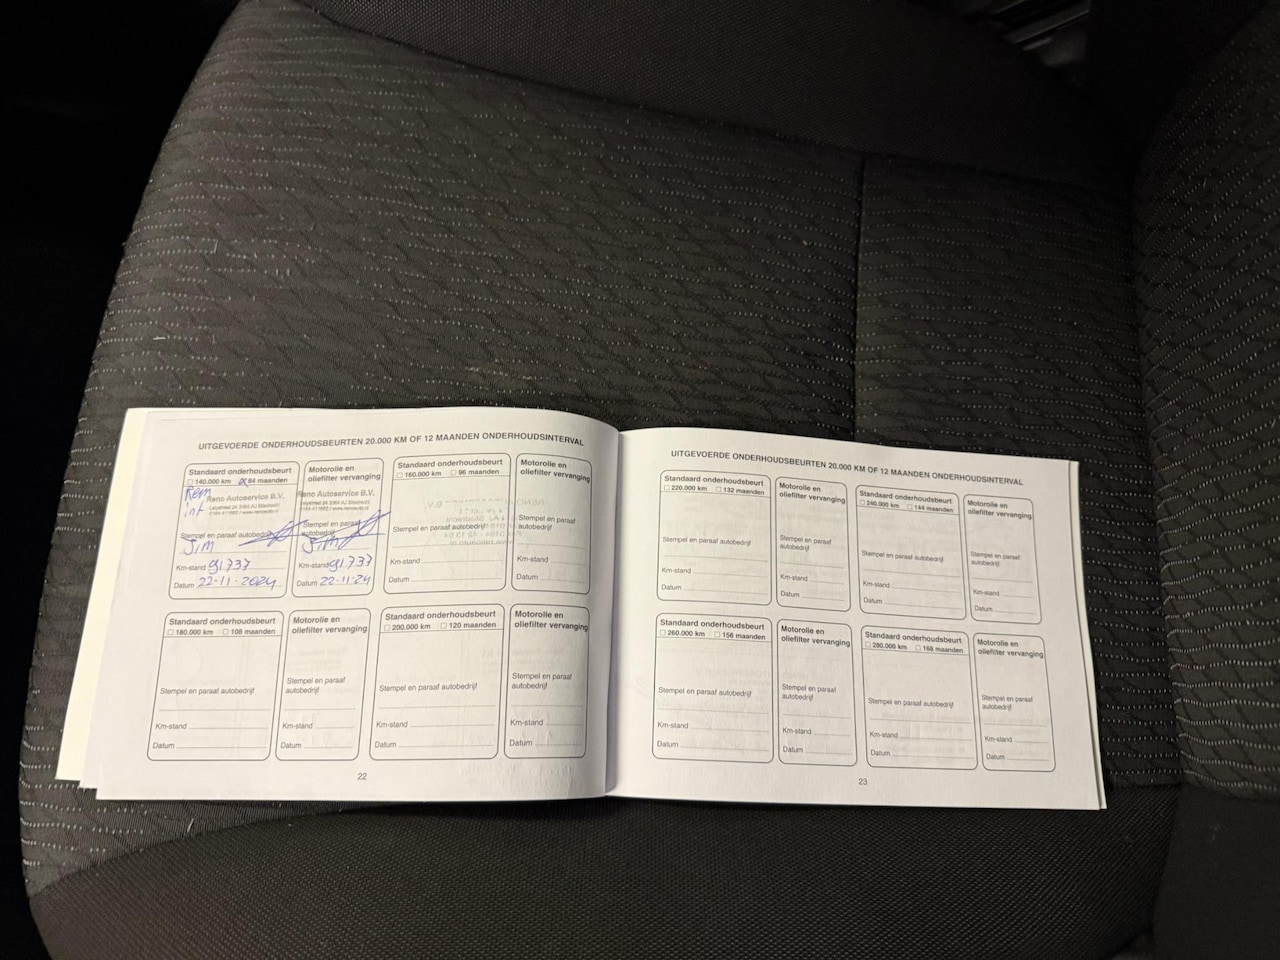 UITGEVOERDE ONDERHOUDSBEURTEN 20.000 KM OF 12 MAANDEN ONDERHOUDSINTERVAL
Standaard onderhoudsbeurt
140.000 km 84 maanden
Rem
int
Reno Autoservice B.V.
Stempel en paraaf autobedrijf
Jim
Km-stand 91737
Datum 22-11-2024
Motorolie en
oliefilter vervanging
Reno Autoservice B.V.
Stempel en paraaf
autobedrijf
Jim
Km-stand 91737
Datum 22-11-24
Standaard onderhoudsbeurt
160.000 km 96 maanden
Stempel en paraaf autobedrijf
Km-stand
Datum
Motorolie en
oliefilter vervanging
Stempel en paraaf
autobedrijf
Km-stand
Datum
Standaard onderhoudsbeurt
180.000 km 108 maanden
Stempel en paraaf autobedrijf
Km-stand
Datum
Motorolie en
oliefilter vervanging
Stempel en paraaf
autobedrijf
Km-stand
Datum
Standaard onderhoudsbeurt
200.000 km 120 maanden
Stempel en paraaf autobedrijf
Km-stand
Datum
Motorolie en
oliefilter vervanging
Stempel en paraaf
autobedrijf
Km-stand
Datum
22
UITGEVOERDE ONDERHOUDSBEURTEN 20.000 KM OF 12 MAANDEN ONDERHOUDSINTERVAL
Standaard onderhoudsbeurt
220.000 km 132 maanden
Stempel en paraaf autobedrijf
Km-stand
Datum
Motorolie en
oliefilter vervanging
Stempel en paraaf
autobedrijf
Km-stand
Datum
Standaard onderhoudsbeurt
240.000 km 144 maanden
Stempel en paraaf autobedrijf
Km-stand
Datum
Motorolie en
oliefilter vervanging
Stempel en paraaf
autobedrijf
Km-stand
Datum
Standaard onderhoudsbeurt
260.000 km 156 maanden
Stempel en paraaf autobedrijf
Km-stand
Datum
Motorolie en
oliefilter vervanging
Stempel en paraaf
autobedrijf
Km-stand
Datum
Standaard onderhoudsbeurt
280.000 km 168 maanden
Stempel en paraaf autobedrijf
Km-stand
Datum
Motorolie en
oliefilter vervanging
Stempel en paraaf
autobedrijf
Km-stand
Datum
23